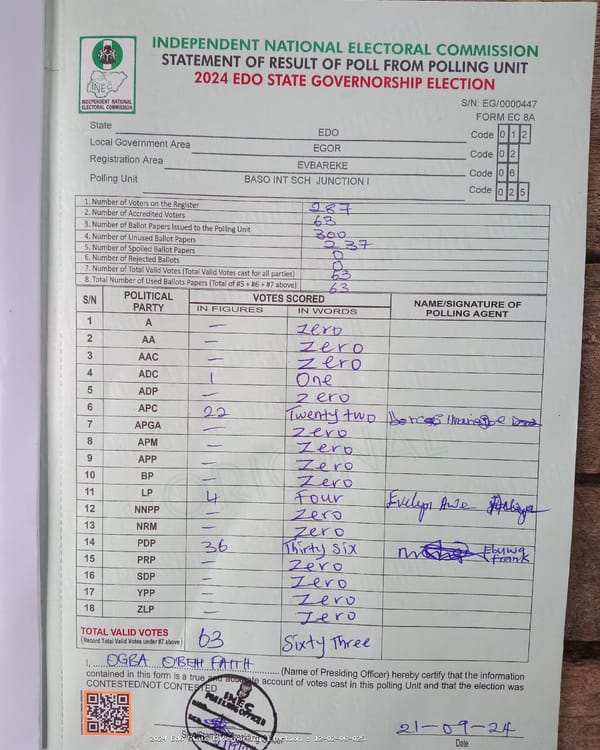 INDEPENDENT NATIONAL ELECTORAL COMMISSION
STATEMENT OF RESULT OF POLL FROM POLLING UNIT
2024 EDO STATE GOVERNORSHIP ELECTION
INEC
INDEPENDENT NATIONAL
ELECTORAL COMMISSION
S/N: EG/0000447
FORM EC 8A
State EDO Code 0 1 2
Local Government Area EGOR Code 0 2
Registration Area EVBAREKE Code 0 6
Polling Unit BASO INT SCH JUNCTION I Code 0 2 5
1. Number of Voters on the Register 287
2. Number of Accredited Voters 63
3. Number of Ballot Papers Issued to the Polling Unit 300
4. Number of Unused Ballot Papers 237
5. Number of Spoiled Ballot Papers 0
6. Number of Rejected Ballots 0
7. Number of Total Valid Votes (Total Valid Votes cast for all parties) 63
8. Total Number of Used Ballots Papers (Total of #5 + #6 + #7 above) 63
S/N POLITICAL PARTY VOTES SCORED NAME/SIGNATURE OF POLLING AGENT
IN FIGURES IN WORDS
1 A — Zero
2 AA — Zero
3 AAC — Zero
4 ADC 1 One
5 ADP — Zero
6 APC 22 Twenty two
7 APGA — Zero
8 APM — Zero
9 APP — Zero
10 BP — Zero
11 LP 4 Four Evelyn
12 NNPP — Zero
13 NRM — Zero
14 PDP 36 Thirty Six Frank
15 PRP — Zero
16 SDP — Zero
17 YPP — Zero
18 ZLP — Zero
TOTAL VALID VOTES 63 Sixty Three
(Record Total Valid Votes under #7 above)
I, OGBA OBEH FAITH (Name of Presiding Officer) hereby certify that the information
contained in this form is a true and accurate account of votes cast in this polling Unit and that the election was
CONTESTED/NOT CONTESTED
21-09-24
Date